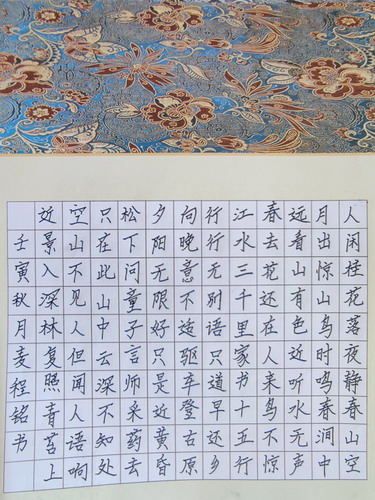 人闲桂花落夜静春山空
月出惊山鸟时鸣春涧中
远看山有色近听水无声
春去花还在人来鸟不惊
江水三千里家书十五行
行行无别语只道早还乡
向晚意不适驱车登古原
夕阳无限好只是近黄昏
松下问童子言师采药去
只在此山中云深不知处
空山不见人但闻人语响
近景入深林复照青苔上
壬寅秋月麦程铭书